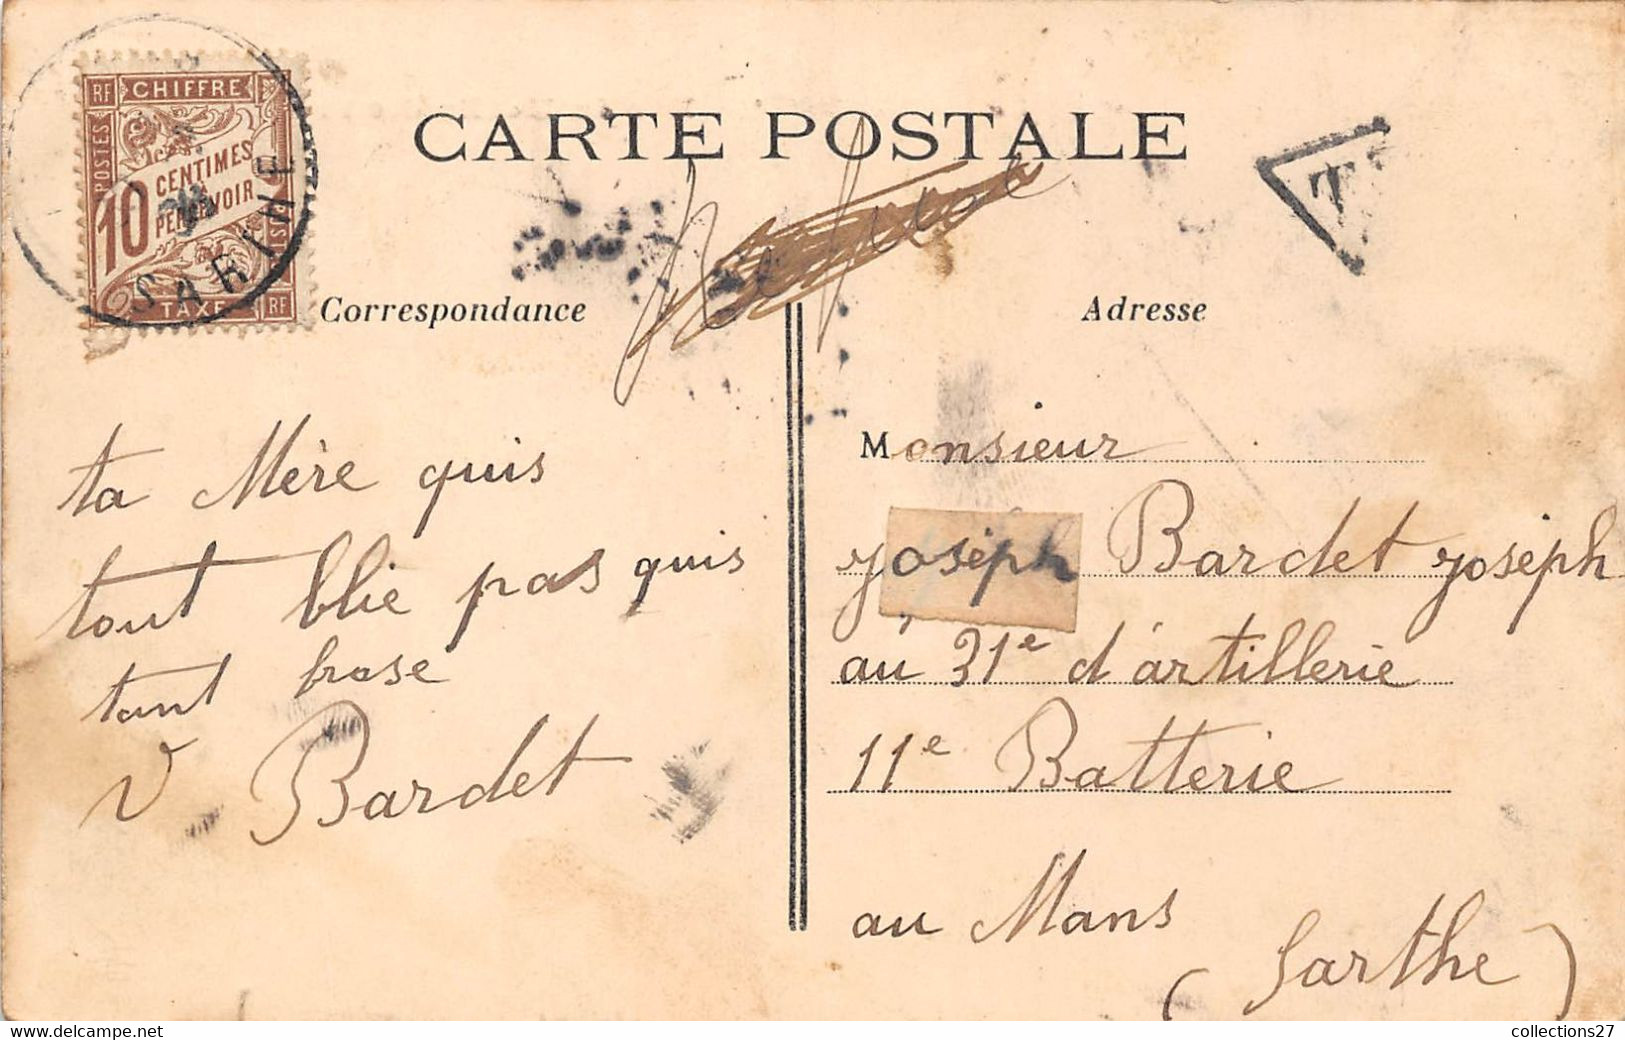 RF CHIFFRE
POSTES
10 CENTIMES
À
PERCEVOIR
TAXE RF
SARTHE
CARTE POSTALE
T
Refusé
Correspondance
Adresse
ta Mère quis
tout blie pas quis
tant brase
V Bardet
Monsieur
Joséph Bardet Joséph
au 31e d'artillerie
11e Batterie
au Mans
(Sarthe)
collections27
https://www.delcampe.net